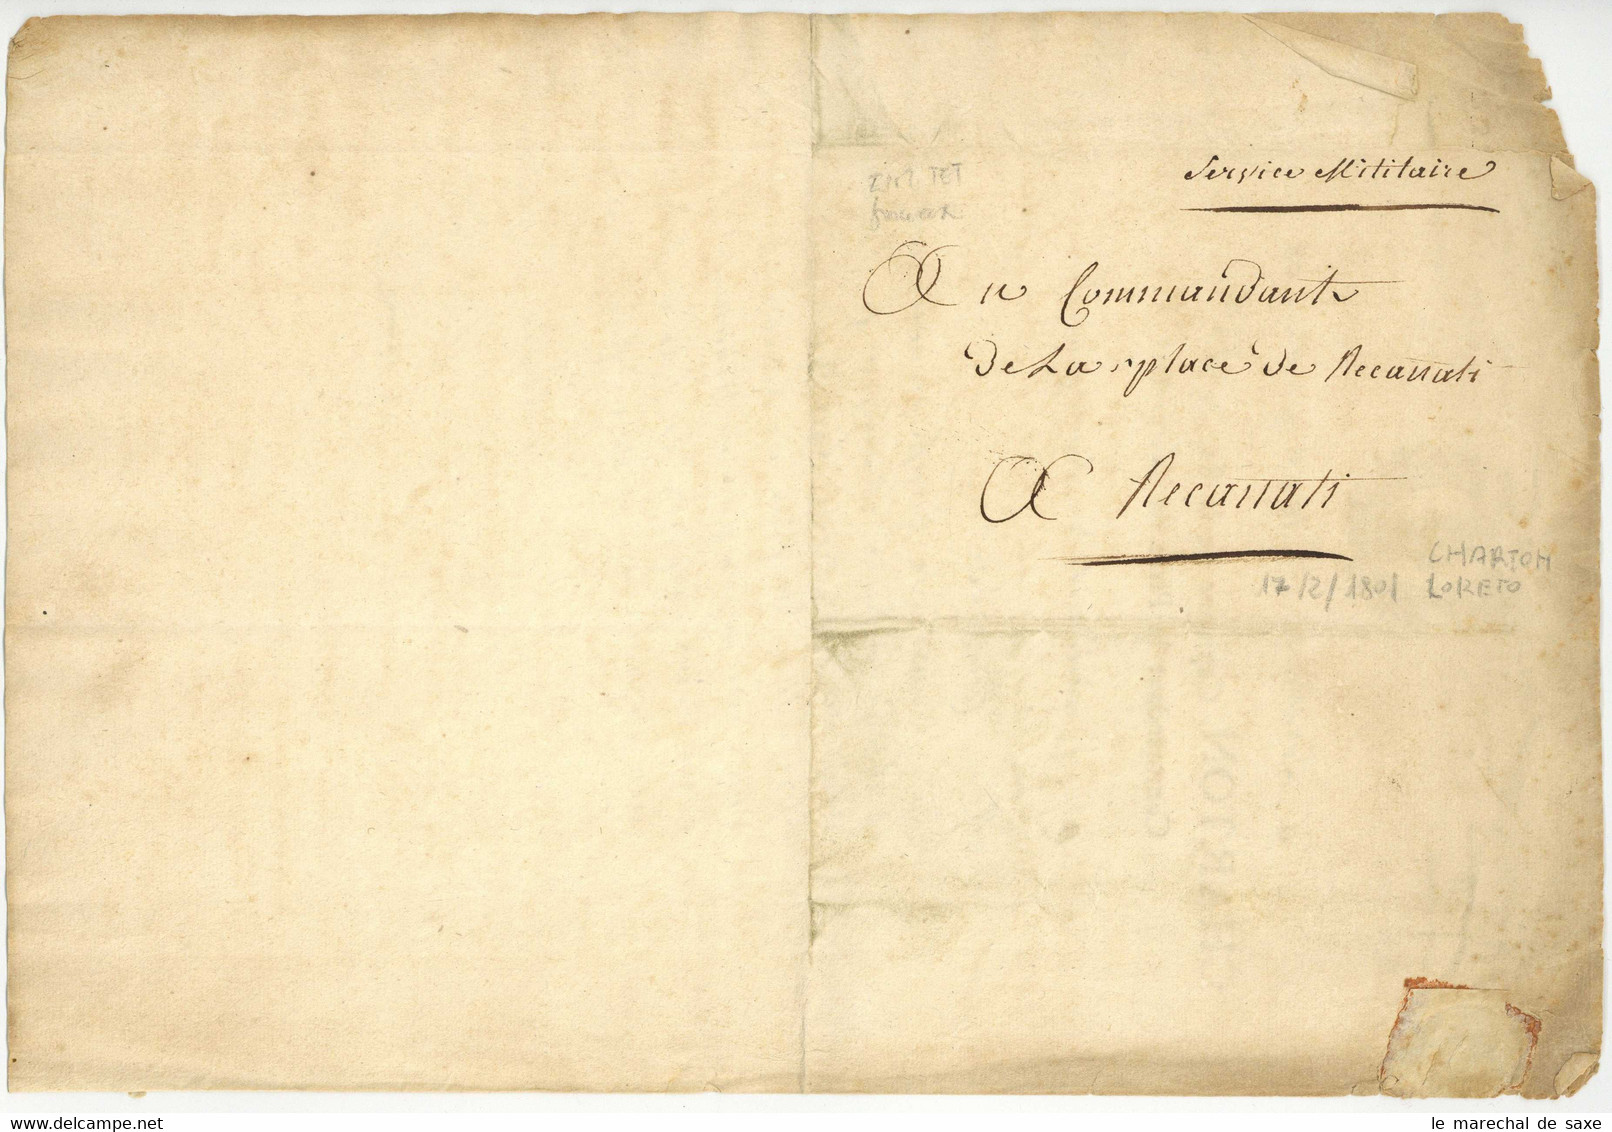 Service Mititaire
Au Commandant
De La place De Recanati
A Recanati
CHARTON
17/2/1801 LORETO
le marechal de saxe